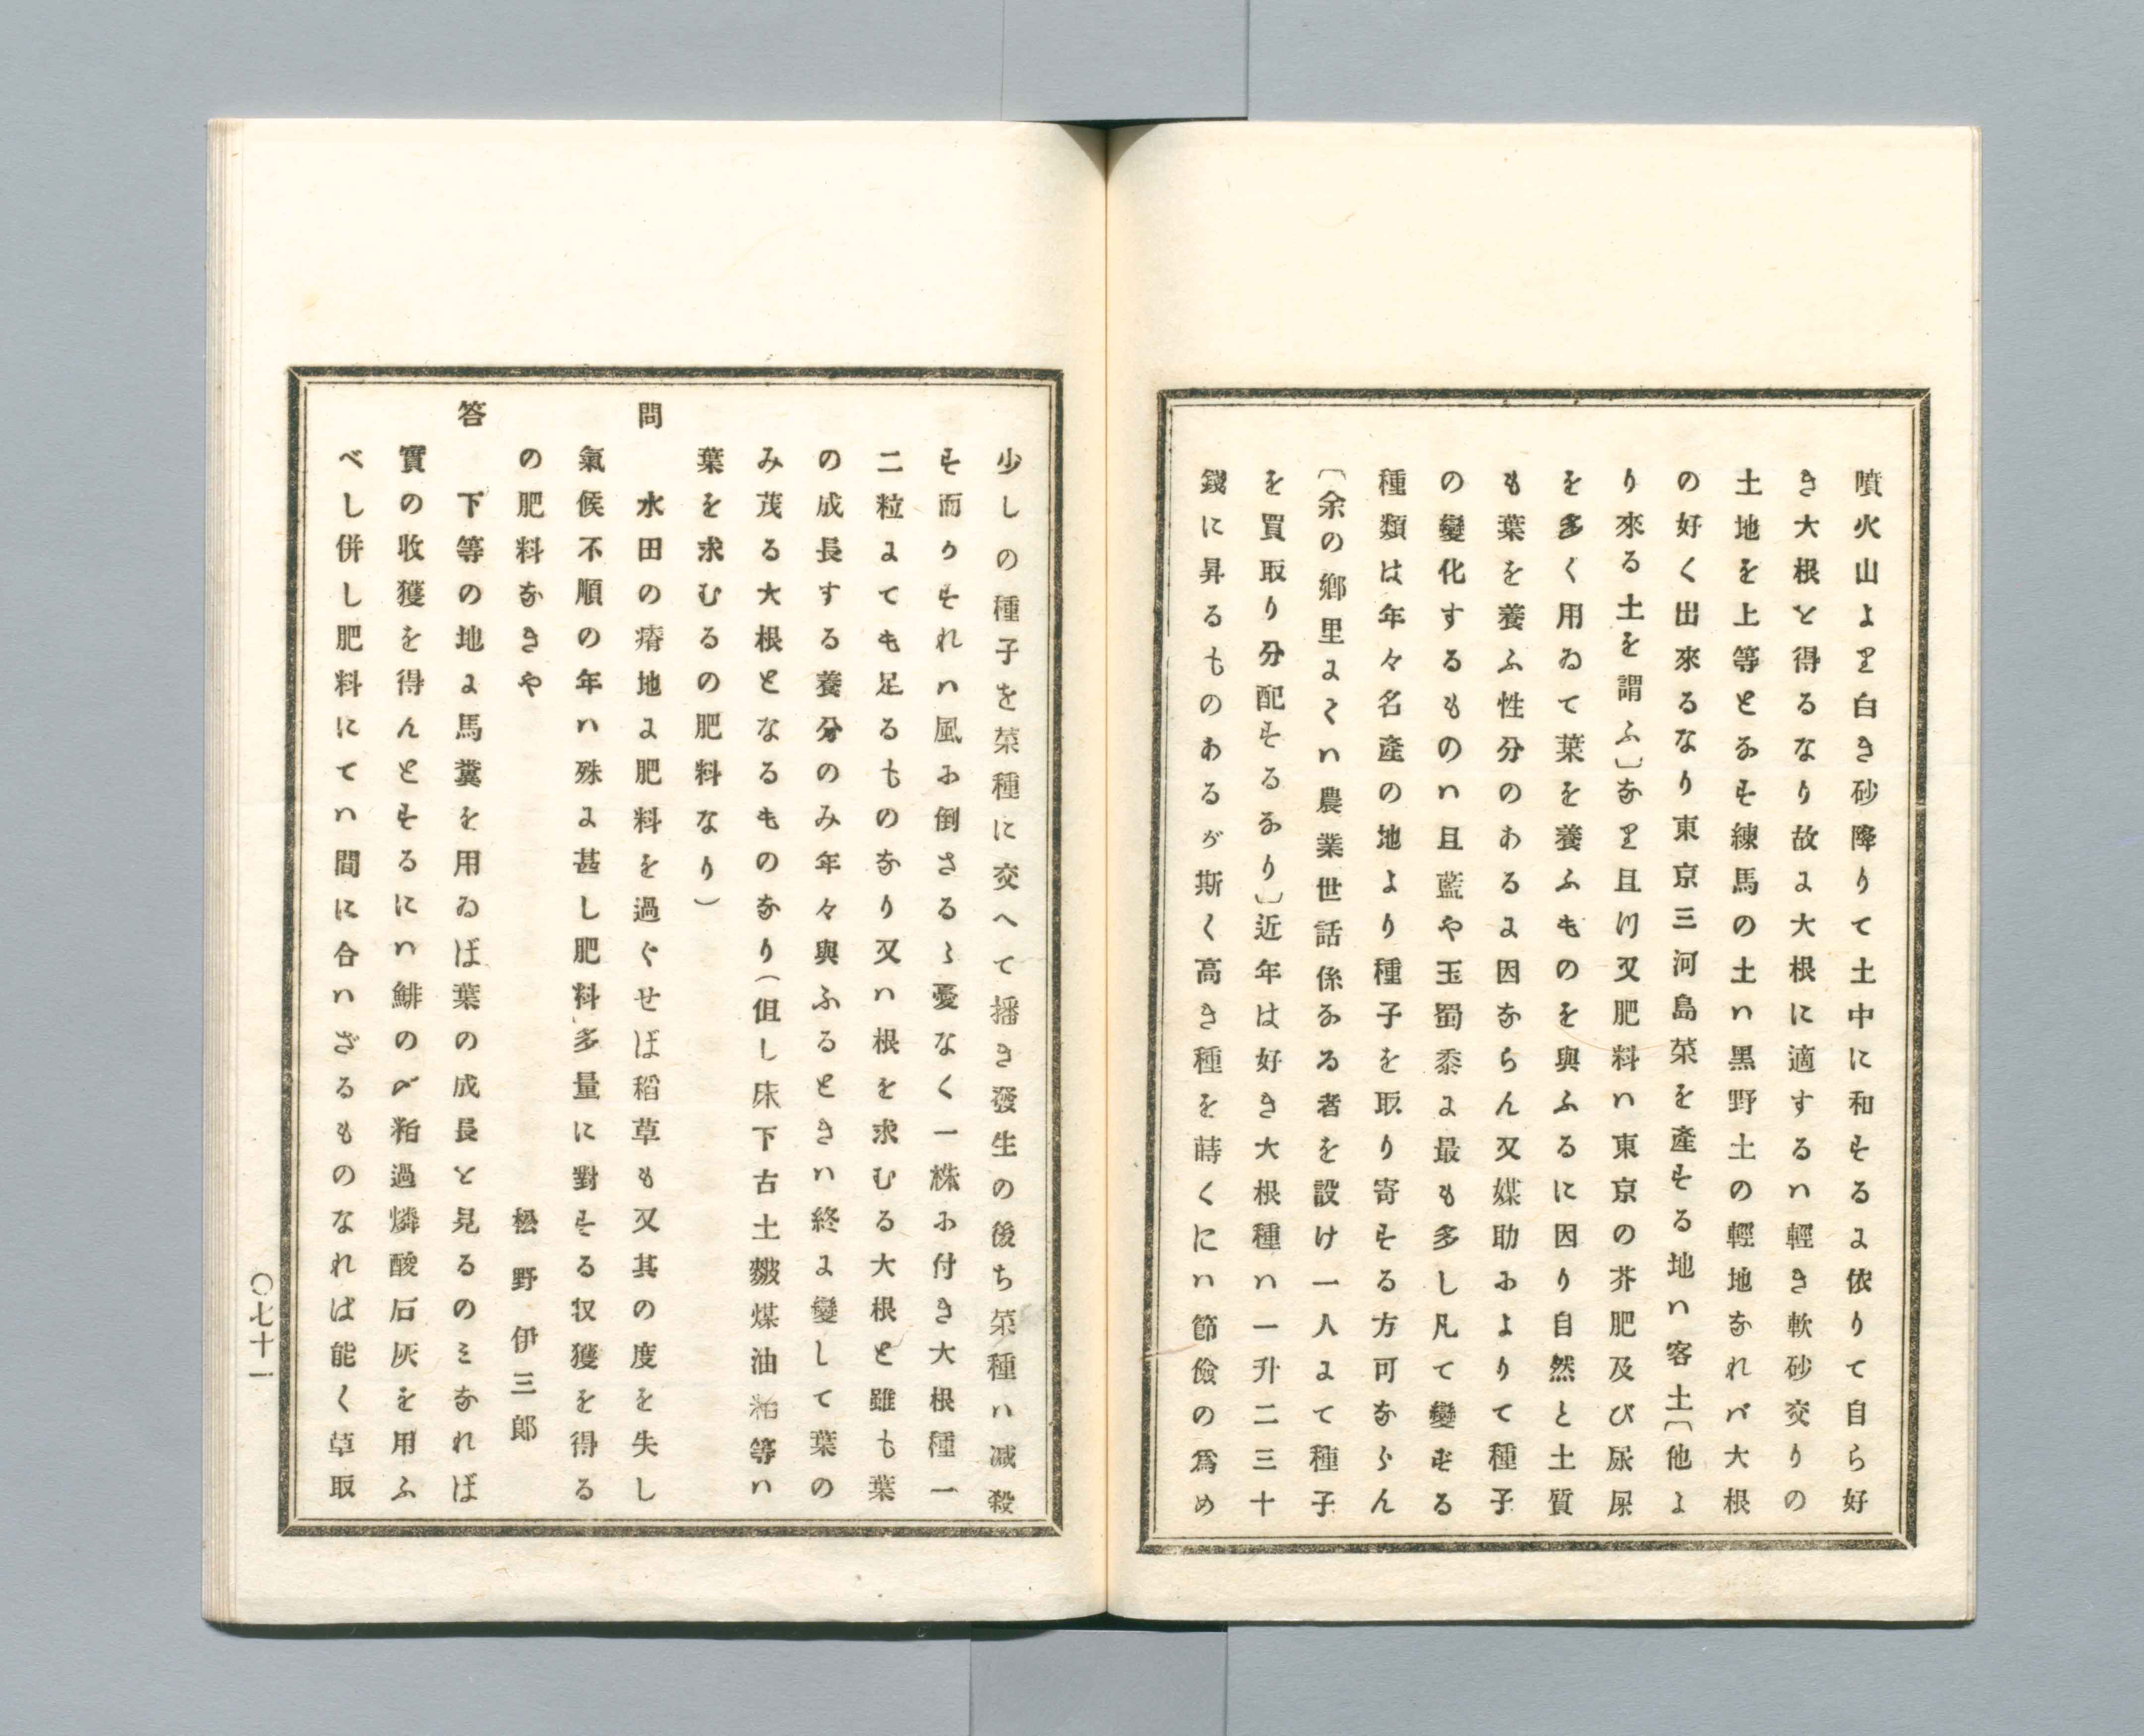 噴火山より白き砂降りて土中に和するに依りて自ら好
き大根と得るなり故に大根に適するハ輕き軟砂交りの
土地を上等となす練馬の土ハ黒野土の輕地なれバ大根
の好く出來るなり東京三河島菜を產する地ハ客土〔他よ
り來る土を謂ふ〕なり且つ又肥料ハ東京の芥肥及び尿屎
を多く用ゐて葉を養ふものを與ふるに因り自然と土質
も葉を養ふ性分のあるに因ならん又媒助によりて種子
の變化するものハ且藍や玉蜀黍に最も多し凡て變ずる
種類は年々名產の地より種子を取り寄する方可ならん
〔余の鄕里にてハ農業世話係なる者を設け一人にて種子
を買取り分配するなり〕近年は好き大根種ハ一升二三十
錢に昇るものあるが斯く高き種を蒔くにハ節儉の爲め
少しの種子を菜種に交へて播き發生の後ち菜種ハ减殺
す而りすれハ風に倒さるゝ憂なく一株に付き大根種一
二粒にても足るものなり又ハ根を求むる大根と雖も葉
の成長する養分のみ年々與ふるときハ終に變して葉の
み茂る大根となるものなり（伹し床下古土皴煤油粕等ハ
葉を求むるの肥料なり）
問　水田の瘠地に肥料を過ぐせば稻草も又其の度を失し
氣候不順の年ハ殊に甚し肥料多量に對する収獲を得る
の肥料なきや　松野伊三郎
答　下等の地に馬糞を用ゐば葉の成長と見るのミなれば
實の收獲を得んとするにハ鯡の〆粕過燐酸石灰を用ふ
べし併し肥料にてハ間に合ハざるものなれば能く草取
〇七十一